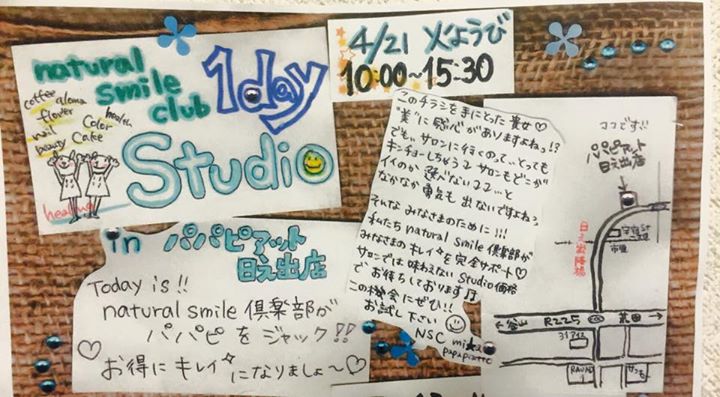 natural
smile
club
1day
Studio
coffee aloma
flover health
nail color
beauty Cake
healing
4/21 火ようび
10:00~15:30
in パパピアット
日之出店
Today is!!
natural smile 倶楽部が
パパピをジャック!!
♡お得にキレイになりましょ~♡
このチラシを手にとった貴女♡
"美"に感心がありますよねっ!?
でも、サロンに行くのって、とっても
キンチョーしちゃうし サロンもどこが
イイのか
なかなか勇気も出ないですよねっ
そんなみなさまのために!!!
私たち natural smile 倶楽部が
みなさまのキレイを完全サポート♡
サロンでは味わえない Studio価格
で お待ちしております
この機会にぜひ!!
お試し下さい
NSC
papapiatto
ココです!!
パパピアット
日之出店
市場
←谷山 R225
31アイス